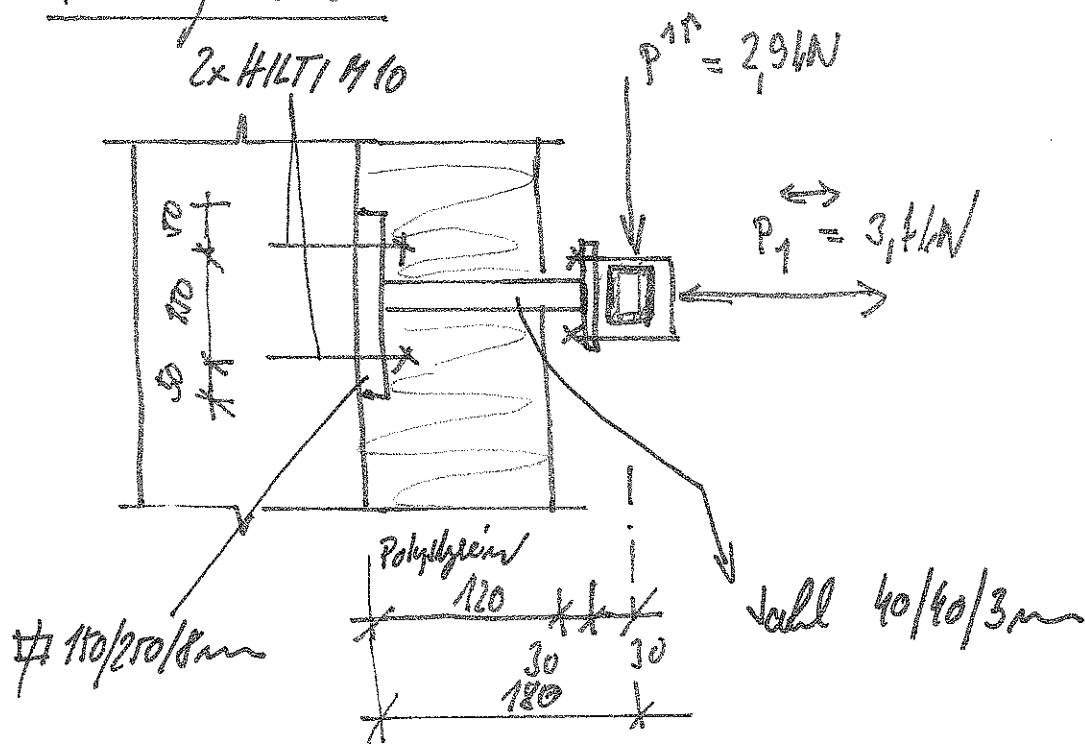 2x HILTI M10
P = 2,9kN
P1 = 3,7kN
50
150
50
Polystyrén
120
30
30
180
150/250/8mm
Jakl 40/40/3mm